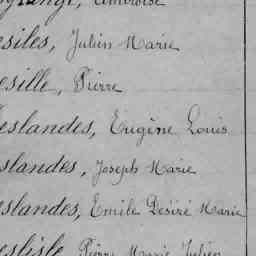 Ambroise
esiles, Julien Marie
esille, Pierre
eslandes, Eugène Louis
slandes, Joseph Marie
eslandes, Emile Desiré Marie
eslisle, Pierre Marie Julien